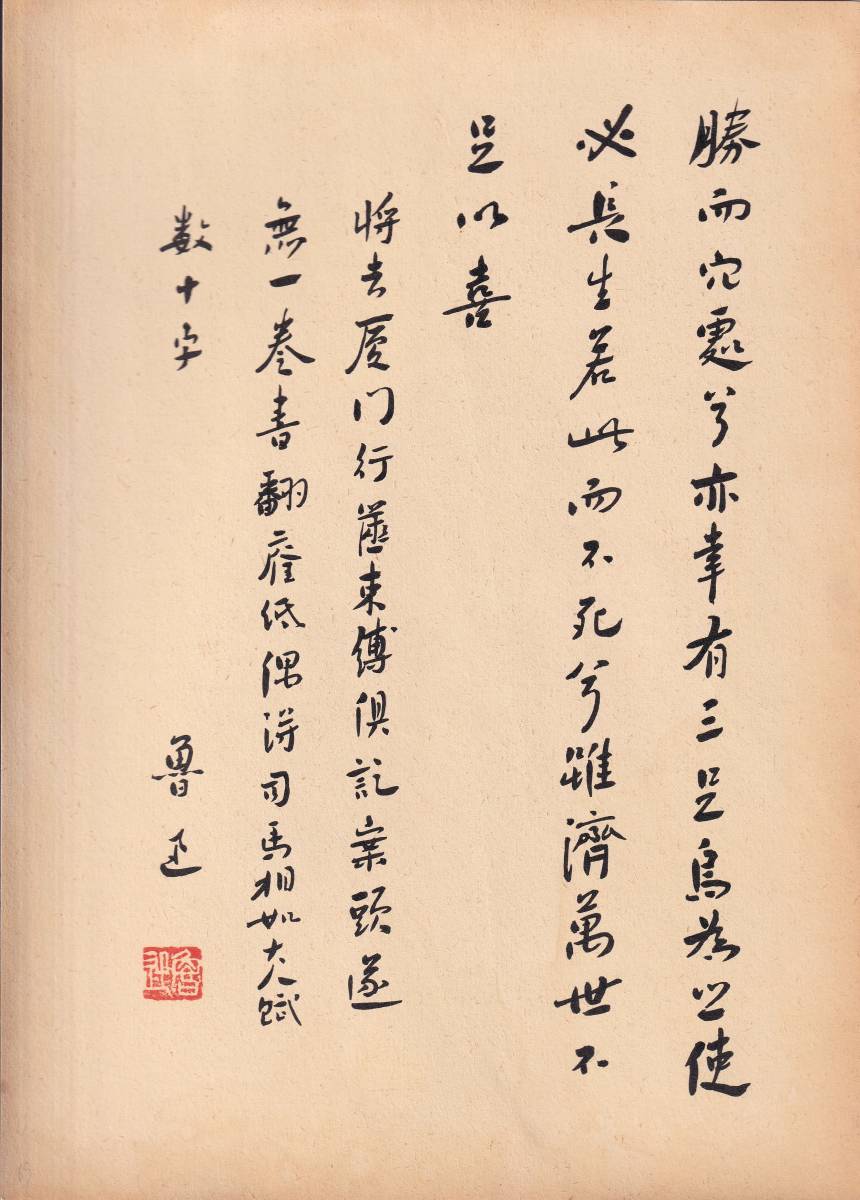 勝而穴處兮亦幸有三足烏為之使
必長生若此而不死兮雖濟萬世不
足以喜
將去厦门行篋束縛俱訖案頭遂
無一卷書翻廢紙偶得司馬相如大人賦
數十字
魯迅
魯迅